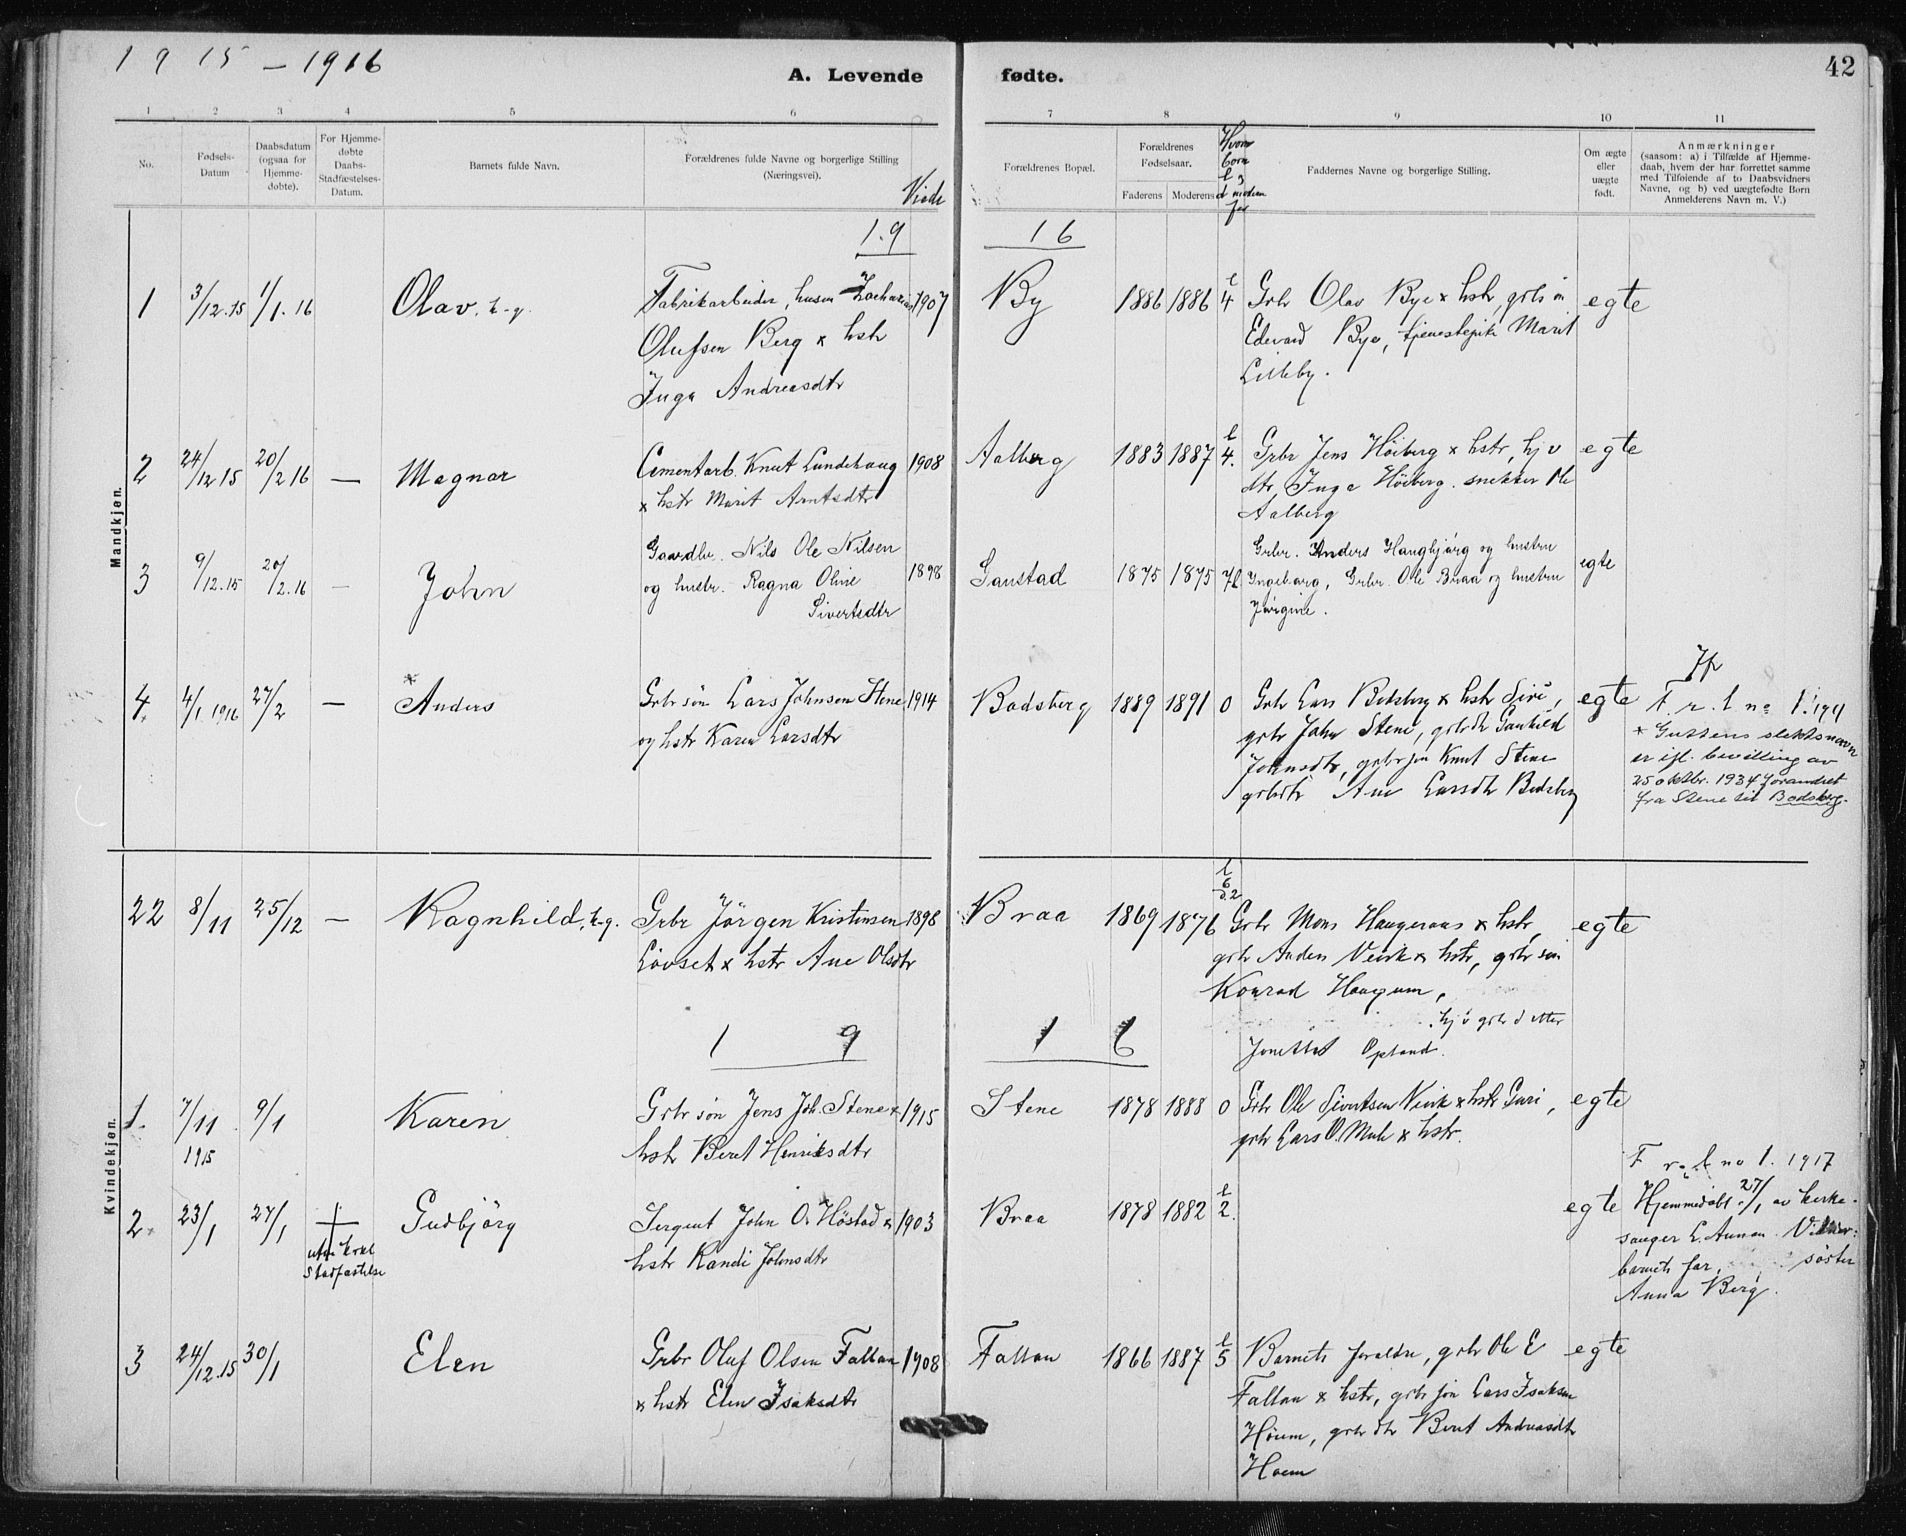 1915 - 1916
A. Levende fødte.
42
1 2 3 4 5 6 7 8 9 10 11
No.
Fødsels-
Datum
Daabsdatum
(ogsaa for
Hjemme-
døbte).
For Hjemme-
døbte
Daabs-
Stadfæstelses-
Datum.
Barnets fulde Navn.
Forældrenes fulde Navne og borgerlige Stilling
(Næringsvei).
Viede
Forældrenes Bopæl.
Forældrenes
Fødselsaar.
Faderens Moderens
Faddernes Navne og borgerlige Stilling.
Om ægte
eller
uægte
født.
Anmærkninger
(saasom: a) i Tilfælde af Hjemme-
daab, hvem der har forrettet samme
med Tilføiende af to Daabsvidners
Navne, og b) ved uægtefødte Børn
Anmelderens Navn m. V.)
Mandkjøn.
19 16
1 3/12.15 1/1.16 Olav Fabrikarbeider, 1907 By 1886 1886 l 4 Grbr Olav Bye x hstr, egte
Olufsen Berg x hstr Edevard Bye, Marit
Inga Andreasdtr Lilleby.
2 24/12 15 20/2 16 — Magnar Cementarb. Knut Lundehaug 1908 Aalberg 1883 1887 l 4. Grbr Jens Höiberg x hstr, hjv egte
x hstr Marit Arntsdtr dtr Inga Höiberg. snekker Ole
Aalberg
3 9/12.15 20/2.16 — John Gaardbr. Nils Ole Nilsen 1898 Ganstad 1875 1875 7l Grbr. Anders Haugbjörg og hustru egte
og hustr. Ragna Oline Ingeborg, Grbr. Ole Braa og hustru
Sivertsdtr Jörgine.
4. 4/1 1916 27/2 — * Anders Grbr søn Lars Johnsen Stene 1914 Bodsberg 1889 1891 0 Grbr Lars Bodsberg x hstr Siri, egte
og hstr Karen Larsdtr grbr John Stene, grbrdtr
Johnsdtr, grbr søn Knut Stene
grbrdtr Ane Larsdtr Bodsberg
* Guttens slektsnavn
er ifl. bevilling av
25 oktbr. 1934 forandret
fra Stene til Bodsberg.
Kvindekjøn.
22 8/11 25/12 — Ragnhild Grbr Jörgen Kristensen 1898 Braa 1869 1876 l 6 d.2 Grbr Mons Haugeraas x hstr, egte
Lövset x hstr Ane Olsdtr grbr Anders x hstr, grbr søn
Konrad Haugum,
hjv grbr d
Opland.
19 16
1. 7/11 1915 9/1 Karen Grbr søn Jens Joh. Stene x 1915 Stene 1878 1888 0 Grbr Ole Sivertsen x hstr Guri, egte
hstr Beret Henriksdtr grbr Lars O. x hstr.
F r. l no 1. 1917
2. 23/1 27/1 Gudbjörg Sergent John O. Höstad x 1903 Braa 1878 1882 l 2. egte Hjemmedøbt 27/1 av kirke-
uten Stadfæstelse hstr Randi Johnsdtr sanger L. Aunan.
barnets far, söster
Anna Berg.
3 24/12.15 30/1 Elen Grbr Oluf Olsen Fallan 1908 Fallan 1866 1887 l 5 Barnets foreldre, grbr Ole E egte
x hstr Elen Isaksdtr Fallan x hstr, grbr søn Lars Isaksen
Hoem, grbr dtr Beret Andreasdtr
Hoem